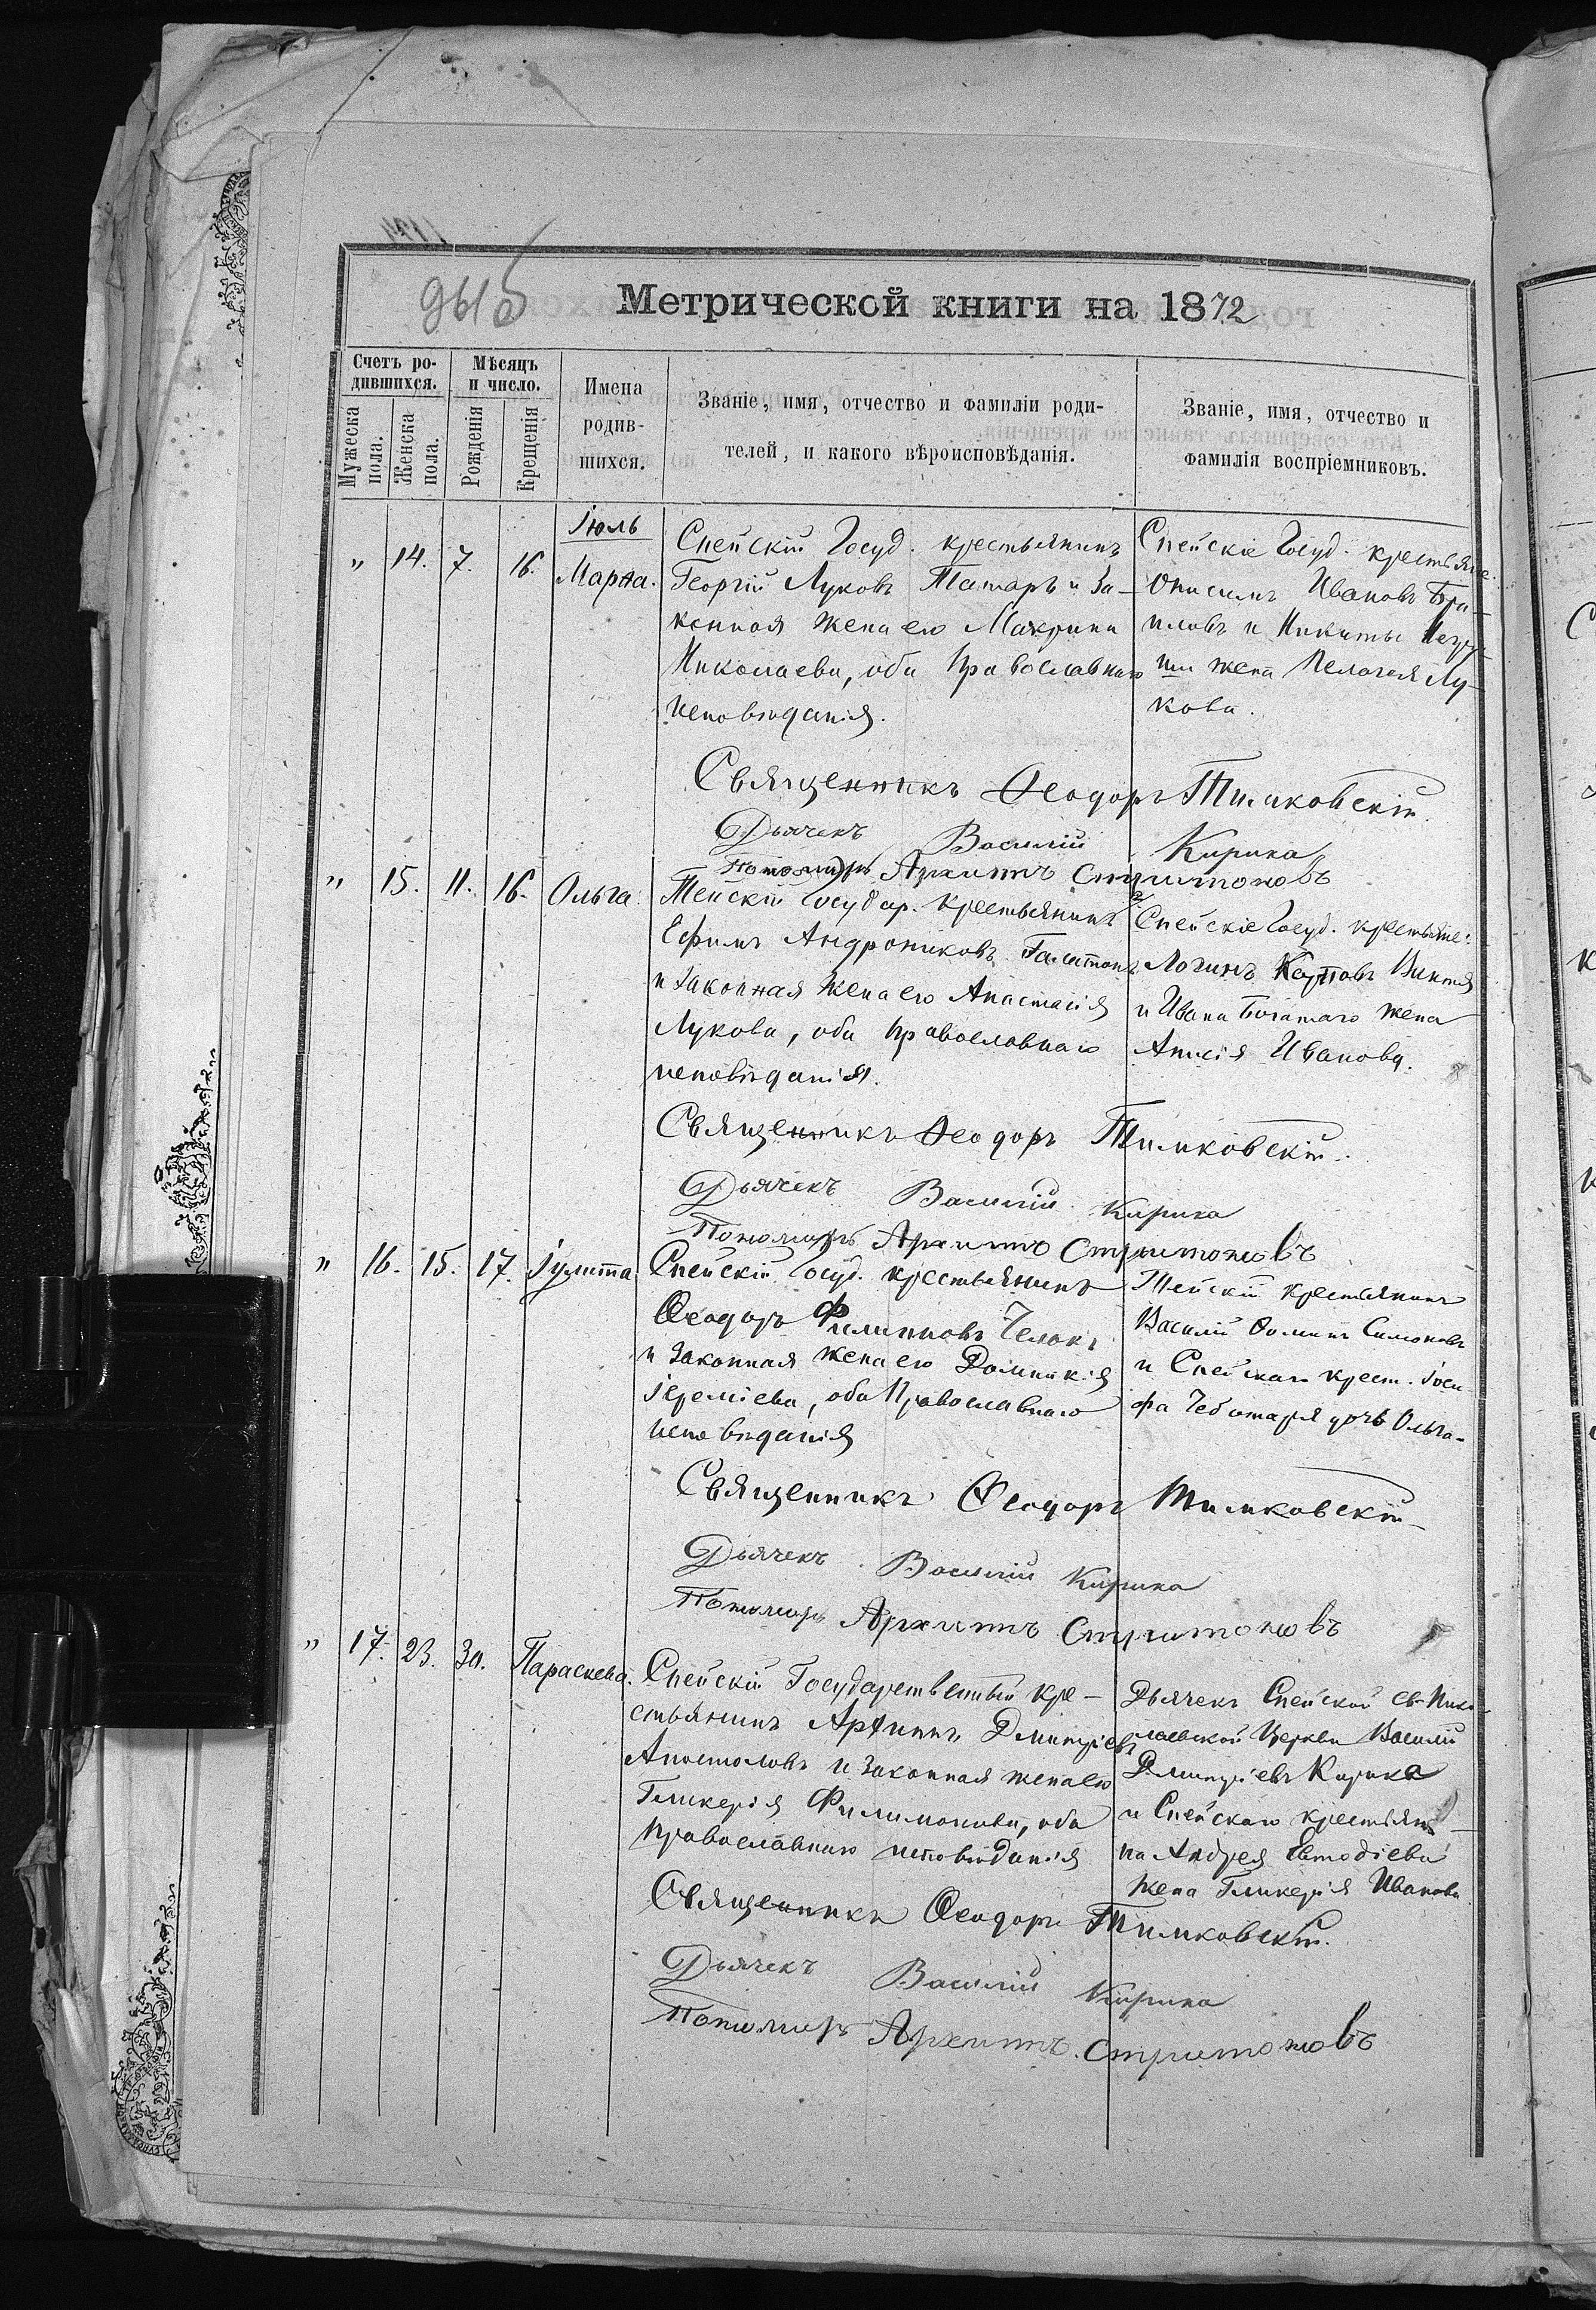 Метрической книги на 1872
Счетъ ро-
дившихся.
Мѣсяцъ
и число.
Имена
родив-
шихся.
Званіе, имя, отчество и фамиліи роди-
телей, и какого вѣроисповѣданія.
Званіе, имя, отчество и
фамилія воспріемниковъ.
Мужеска
пола.
Женска
пола.
Рожденія
Крещенія
Іюль
" 14. 7. 16. Марѳа.
Спейскій Госуд. крестьянинъ
Георгій Луковъ Татаръ и за-
конная жена его Макрина
Николаева, оба православнаго
исповѣданія.
Спейскіе Госуд. крестьяне
Онисимъ Ивановъ
и Никиты
жена Пелагея Лу-
кова.
Священникъ Ѳеодоръ Тимковскій
Дьячекъ Василій Кирика
Пономарь Архиппъ Стритоновъ
" 15. 11. 16. Ольга.
Тейскій Государ. крестьянинъ
Ефимъ Андрониковъ Галатонъ
и законная жена его Анастасія
Лукова, оба православнаго
исповѣданія.
Спейскіе Госуд. крестьяне:
Логинъ Карповъ
и Ивана Богатаго жена
Анисія Иванова.
Священникъ Ѳеодоръ Тимковскій.
Дьячекъ Василій Кирика
Пономарь Архиппъ Стритоновъ
" 16. 15. 17. Іулитта.
Спейскій Госуд. крестьянинъ
Ѳеодоръ Филипповъ
и законная жена его Домникія
Іереміева, оба Православнаго
исповѣданія
Тейскій крестьянинъ
Василій Ѳоминъ Симоновъ
и Спейскаго крест. Іоси
фа Чеботаря дочь Ольга.
Священникъ Ѳеодоръ Тимковскій
Дьячекъ Василій Кирика
Пономарь Архиппъ Стритоновъ
" 17. 23. 30. Параскева.
Спейскій Государственный кре-
стьянинъ Архиппъ Димитріевъ
Апостоловъ и законная жена его
Гликерія Филимонова, оба
православнаго исповѣданія
Дьячекъ Спейской св. Нико-
лаевской Церкви Василій
Димитріевъ Кирика
и Спейскаго крестьяни-
на Андрея Евтодіева
жена Гликерія Иванова
Священникъ Ѳеодоръ Тимковскій.
Дьячекъ Василій Кирика
Пономарь Архиппъ Стритоновъ